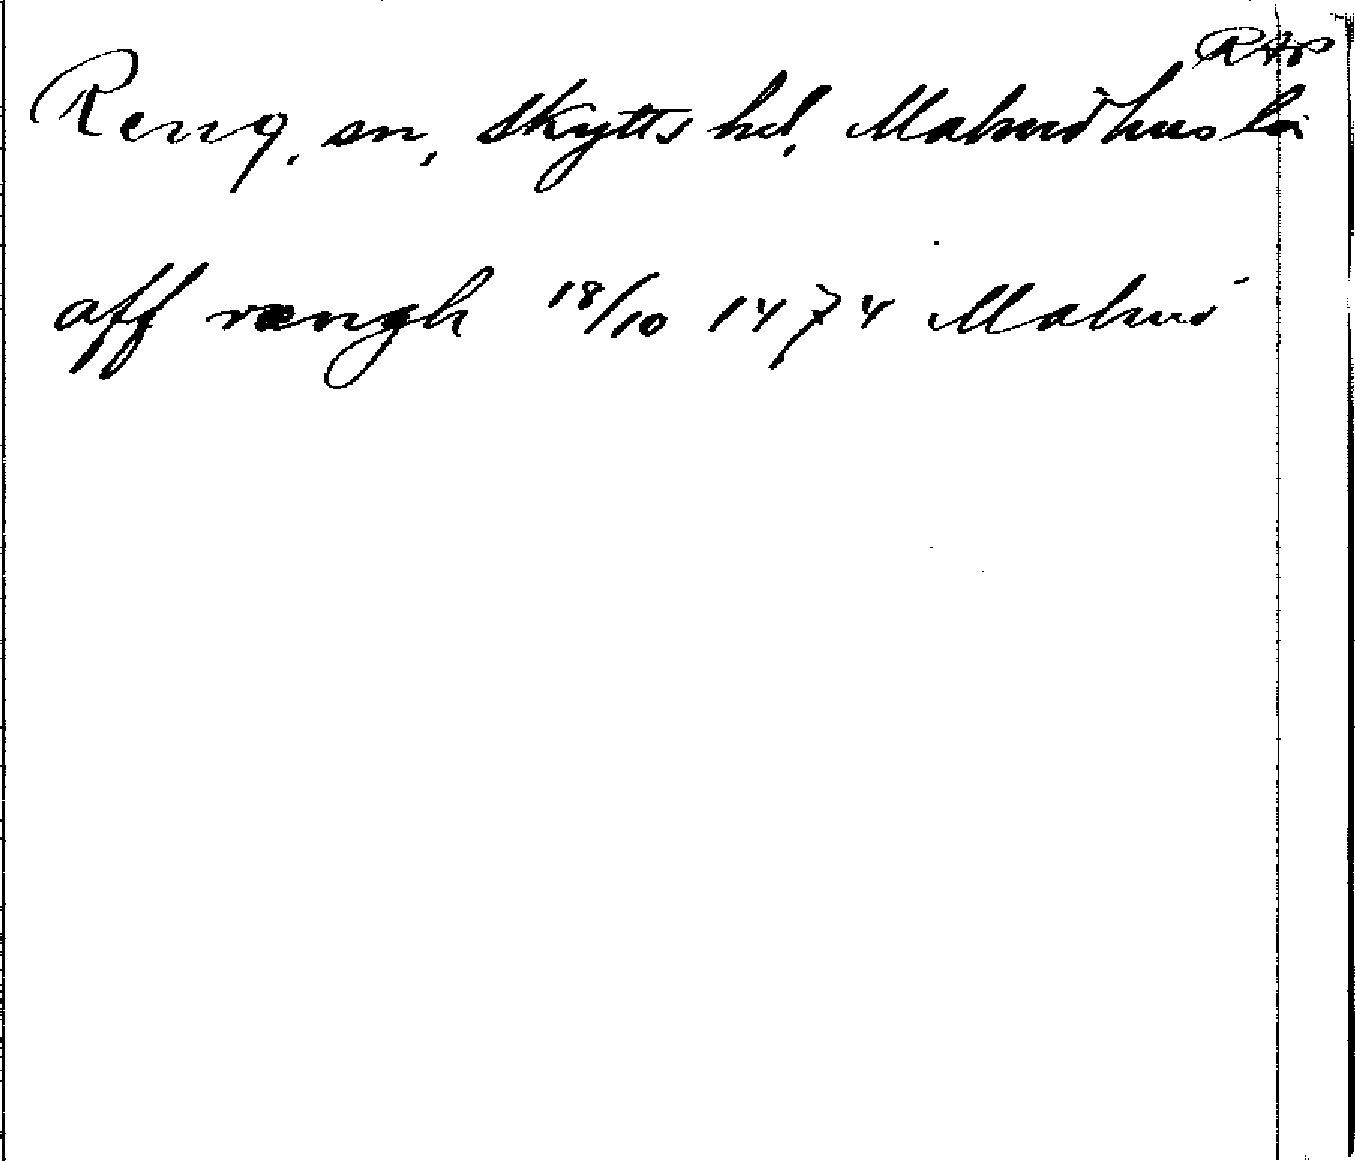 RAp
Reng, sn, Skytts hd, Malmöhus län
aff rængh 18/10 1474 Malmö